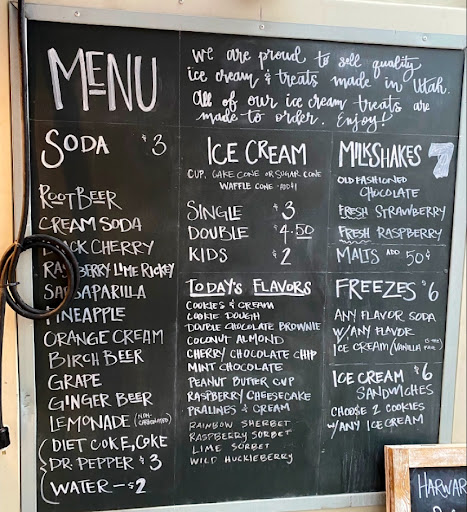 MENU
We are proud to sell quality
ice cream & treats made in Utah.
All of our ice cream treats are
made-to order. Enjoy!
SODA $3
ROOT BEER
CREAM SODA
BLACK CHERRY
RASPBERRY LIME RICKEY
SARSAPARILLA
PINEAPPLE
ORANGE CREAM
BIRCH BEER
GRAPE
GINGER BEER
LEMONADE (NON-CARBONATED)
(DIET COKE, COKE
DR. PEPPER $3
(WATER - $2
ICE CREAM
CUP, CAKE CONE OR SUGAR CONE
WAFFLE CONE - ADD $1
SINGLE $3
DOUBLE $4.50
KIDS $2
TODAY'S FLAVORS
COOKIES & CREAM
COOKIE DOUGH
DOUBLE CHOCOLATE BROWNIE
COCONUT ALMOND
CHERRY CHOCOLATE CHIP
MINT CHOCOLATE
PEANUT BUTTER CUP
RASPBERRY CHEESECAKE
PRALINES & CREAM
RAINBOW SHERBET
RASPBERRY SORBET
LIME SORBET
WILD HUCKLEBERRY
MILKSHAKES 7
OLD FASHIONED
CHOCOLATE
FRESH STRAWBERRY
FRESH RASPBERRY
MALTS ADD 50¢
FREEZES $6
ANY FLAVOR SODA
W/ANY FLAVOR
ICE CREAM (VANILLA IS THE FAVE)
ICE CREAM $6
SANDWICHES
CHOOSE 2 COOKIES
W/ANY ICE CREAM
HARWAR